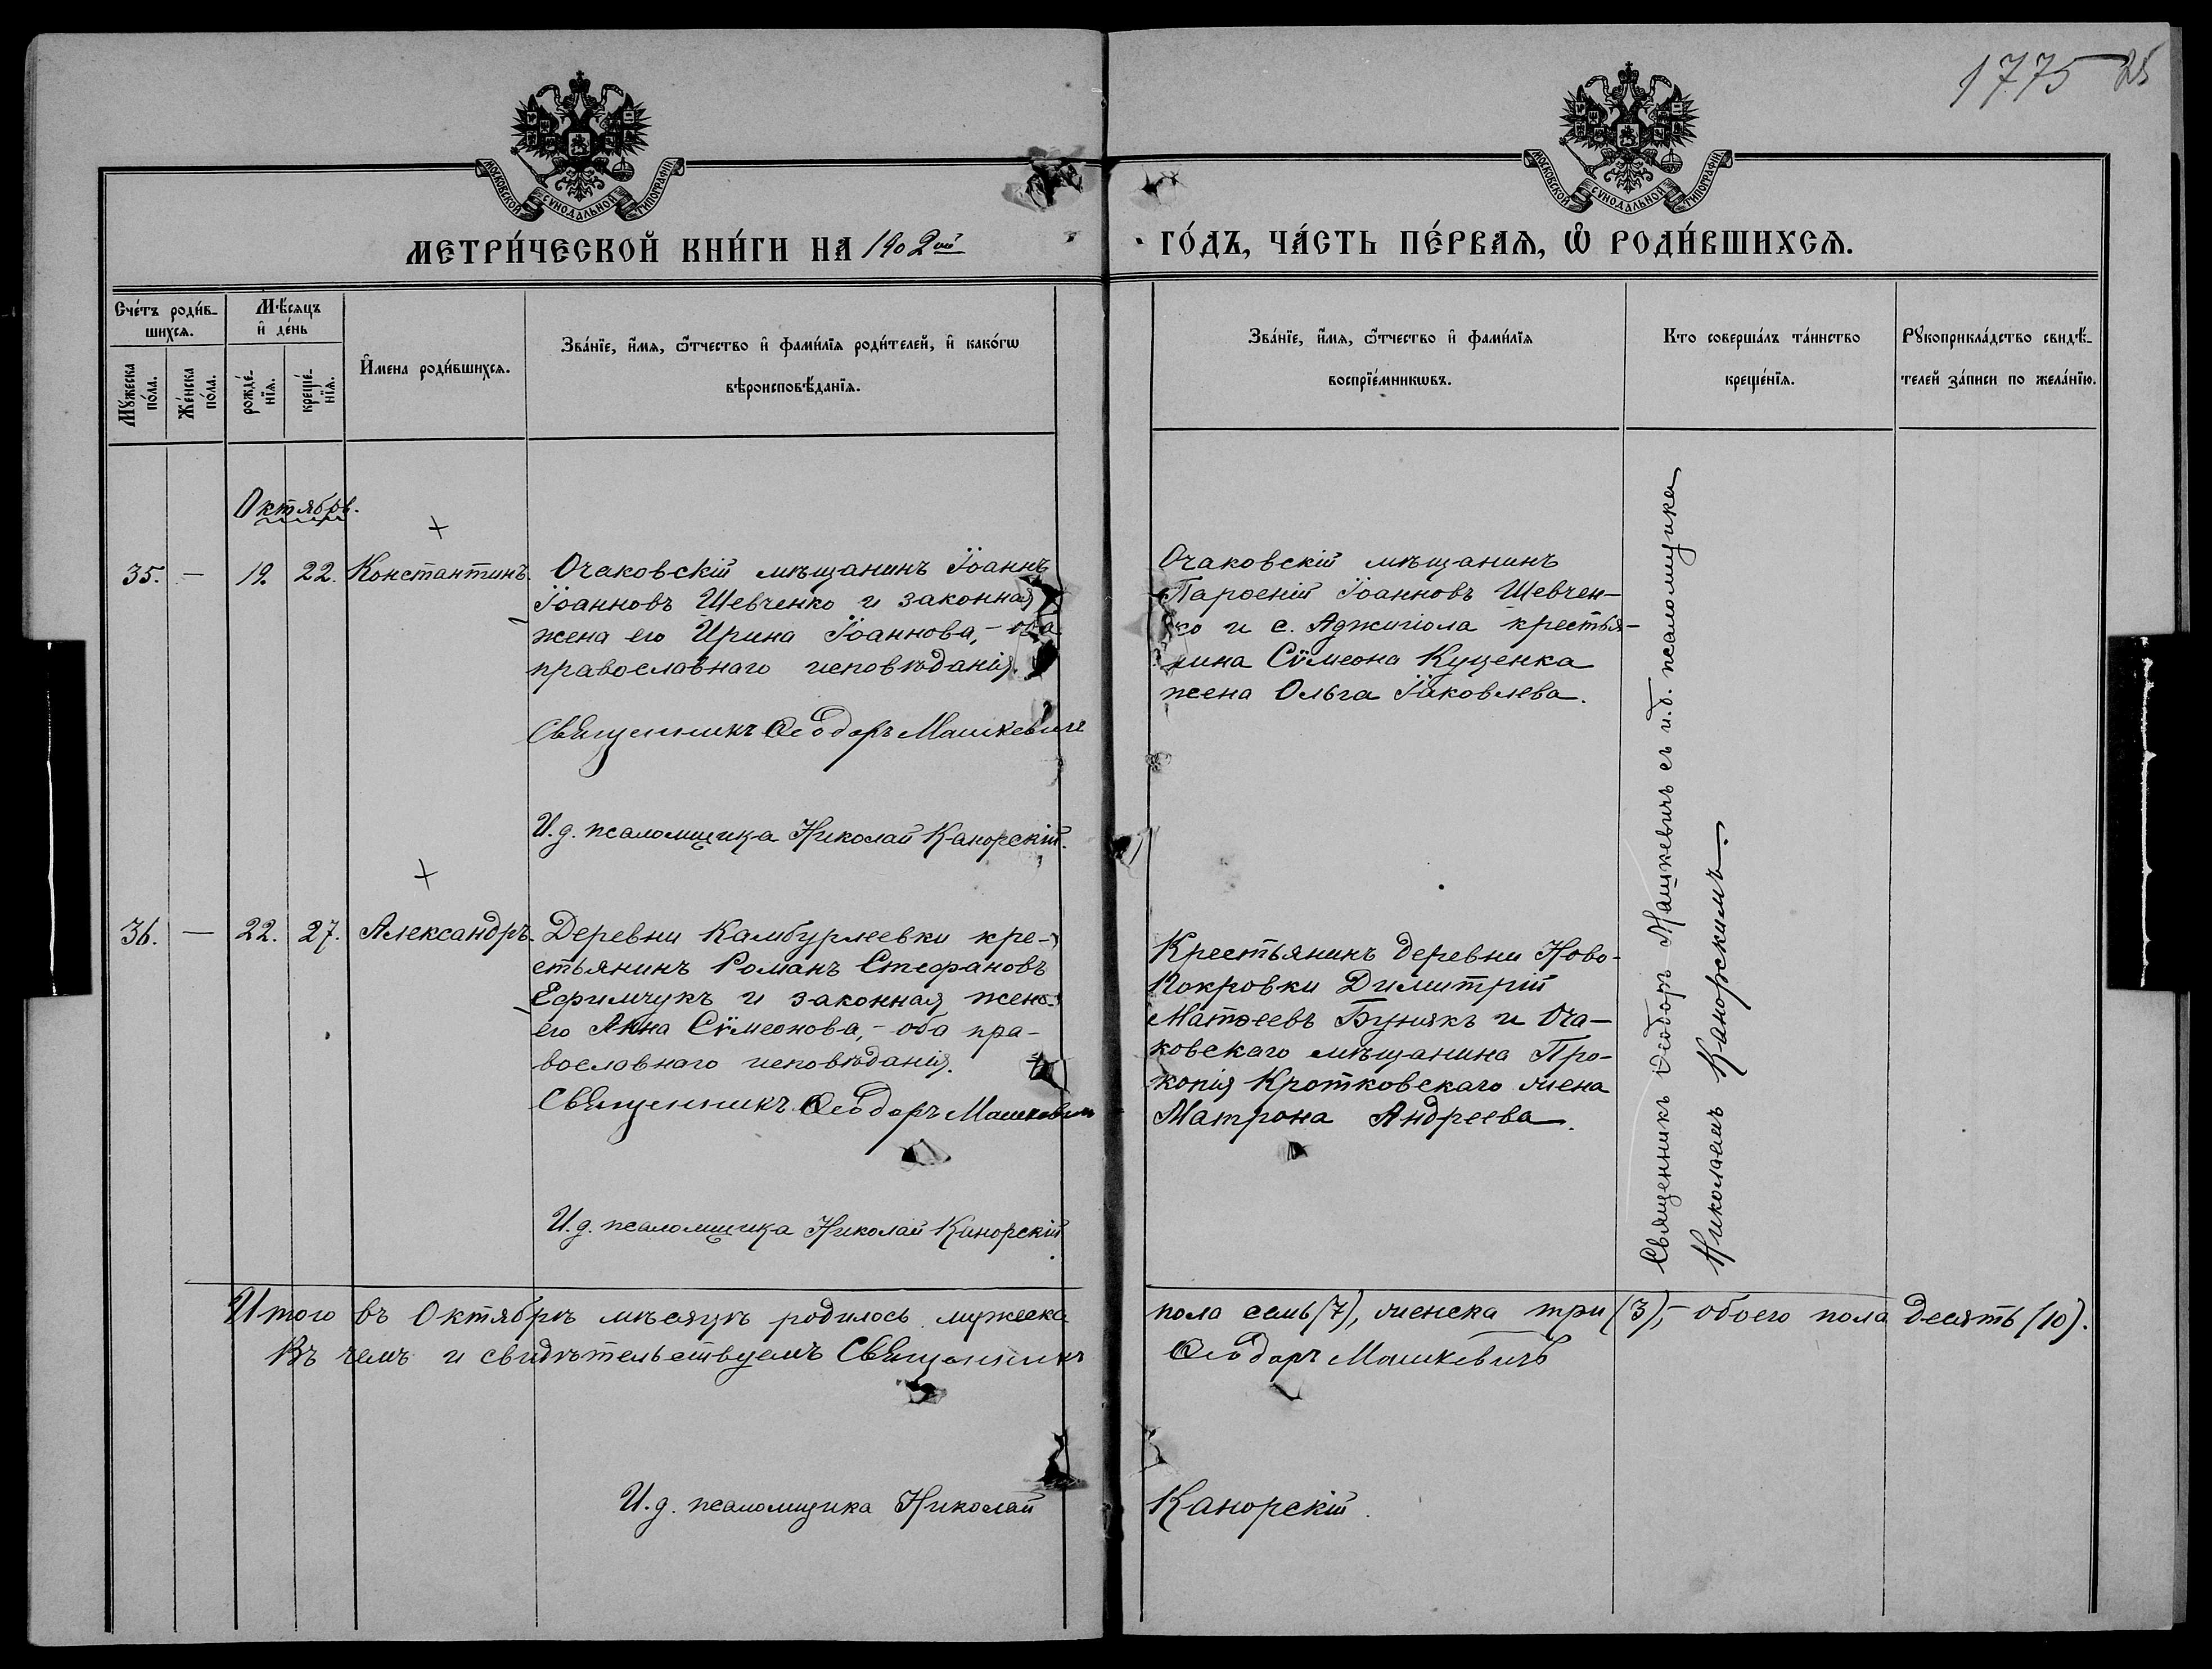 1775 25
МОСКОВСКОЙ СѴНОДАЛЬНОЙ ТИПОГРАФІИ
МОСКОВСКОЙ СѴНОДАЛЬНОЙ ТИПОГРАФІИ
МЕТРИ́ЧЕСКОЙ КНИ́ГИ НА 1902ой ГО́ДЪ, ЧА́СТЬ ПЕ́РВАѦ, Ѽ РОДИ́ВШИХСѦ.
Сче́тъ роди́в-
шихсѧ.
Мꙋ́жеска по́ла.
Же́нска по́ла.
Мѣ́сѧцъ
и҆ де́нь
рожде́-
нїѧ.
креще́-
нїѧ.
И҆мена роди́вшихсѧ.
Зва́нїе, и҆́мѧ, ѻ҆́тчество и҆ фами́лїѧ роди́телей, и҆ како́гѡ
вѣроисповѣ́данїѧ.
Зва́нїе, и҆́мѧ, ѻ҆́тчество и҆ фами́лїѧ
воспрїе́мникѡвъ.
Кто соверша́лъ та́инство
креще́нїѧ.
Рꙋкоприкла́дство свидѣ́-
телей за́писи по жела́нїю.
Октябрь.
35. — 19 22. Константинъ.
Очаковскій мѣщанинъ Іоаннъ
Іоанновъ Шевченко и законная
жена его Ирина Іоаннова, - оба
православнаго исповѣданія.
Священникъ Ѳеодоръ Машкевичъ
И. д. псаломщика Николай Канорскій.
Очаковскій мѣщанинъ
Парѳеній Іоанновъ Шевчен-
ко и с. Аджигіола крестья-
нина Сѵмеона Куценка
жена Ольга Іаковлева.
36. — 22. 27. Александръ.
Деревни Камбурлеевки кре-
стьянинъ Романъ Стефановъ
Ефимчукъ и законная жена
его Анна Сѵмеонова, - оба пра-
вославнаго исповѣданія.
Священникъ Ѳеодоръ Машкевичъ
И. д. псаломщика Николай Канорскій
Крестьянинъ деревни Ново-
Покровки Димитрій
Матѳеевъ Бунякъ и Оча-
ковскаго мѣщанина Про-
копія Кротковскаго жена
Матрона Андреева.
Священникъ Ѳеодоръ Машкевичъ съ и. д. псаломщика
Николаемъ Канорскимъ.
Итого въ Октябрѣ мѣсяцѣ родилось мужеска пола семь (7), женска три (3), - обоего пола десять (10).
Въ чемъ и свидѣтельствуемъ Священникъ Ѳеодоръ Машкевичъ
И. д. псаломщика Николай Канорскій.